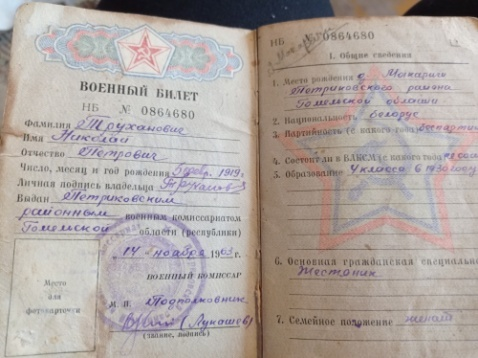 ВОЕННЫЙ БИЛЕТ
НБ № 0864680
Фамилия Трухановис
Имя Николай
Отчество Петрович
Число, месяц и год рождения 5 февр. 1919 г.
Личная подпись владельца Труханов
Выдан Петриковским
районным военным комиссариатом
Гомельской области (республики)
14 ноября 1963 г.
ВОЕННЫЙ КОМИССАР
Место
для
фотокарточки
М. П. Подполковник
(Лукашев)
(звание, подпись)
НБ № 0864680
I. Общие сведения
1. Место рождения с.
Петриковского района
Гомельской области
2. Национальность белорус
3. Партийность (с какого года) беспартий
4. Состоял ли в ВЛКСМ (с какого года)
5. Образование 4 класса в 1930 году
6. Основная гражданская специально
Жестяник
7. Семейное положение женат